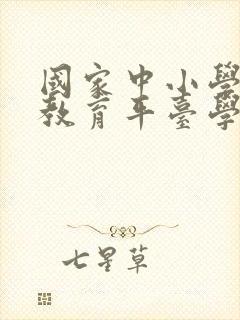 國家中小學
教育平臺學
七星草